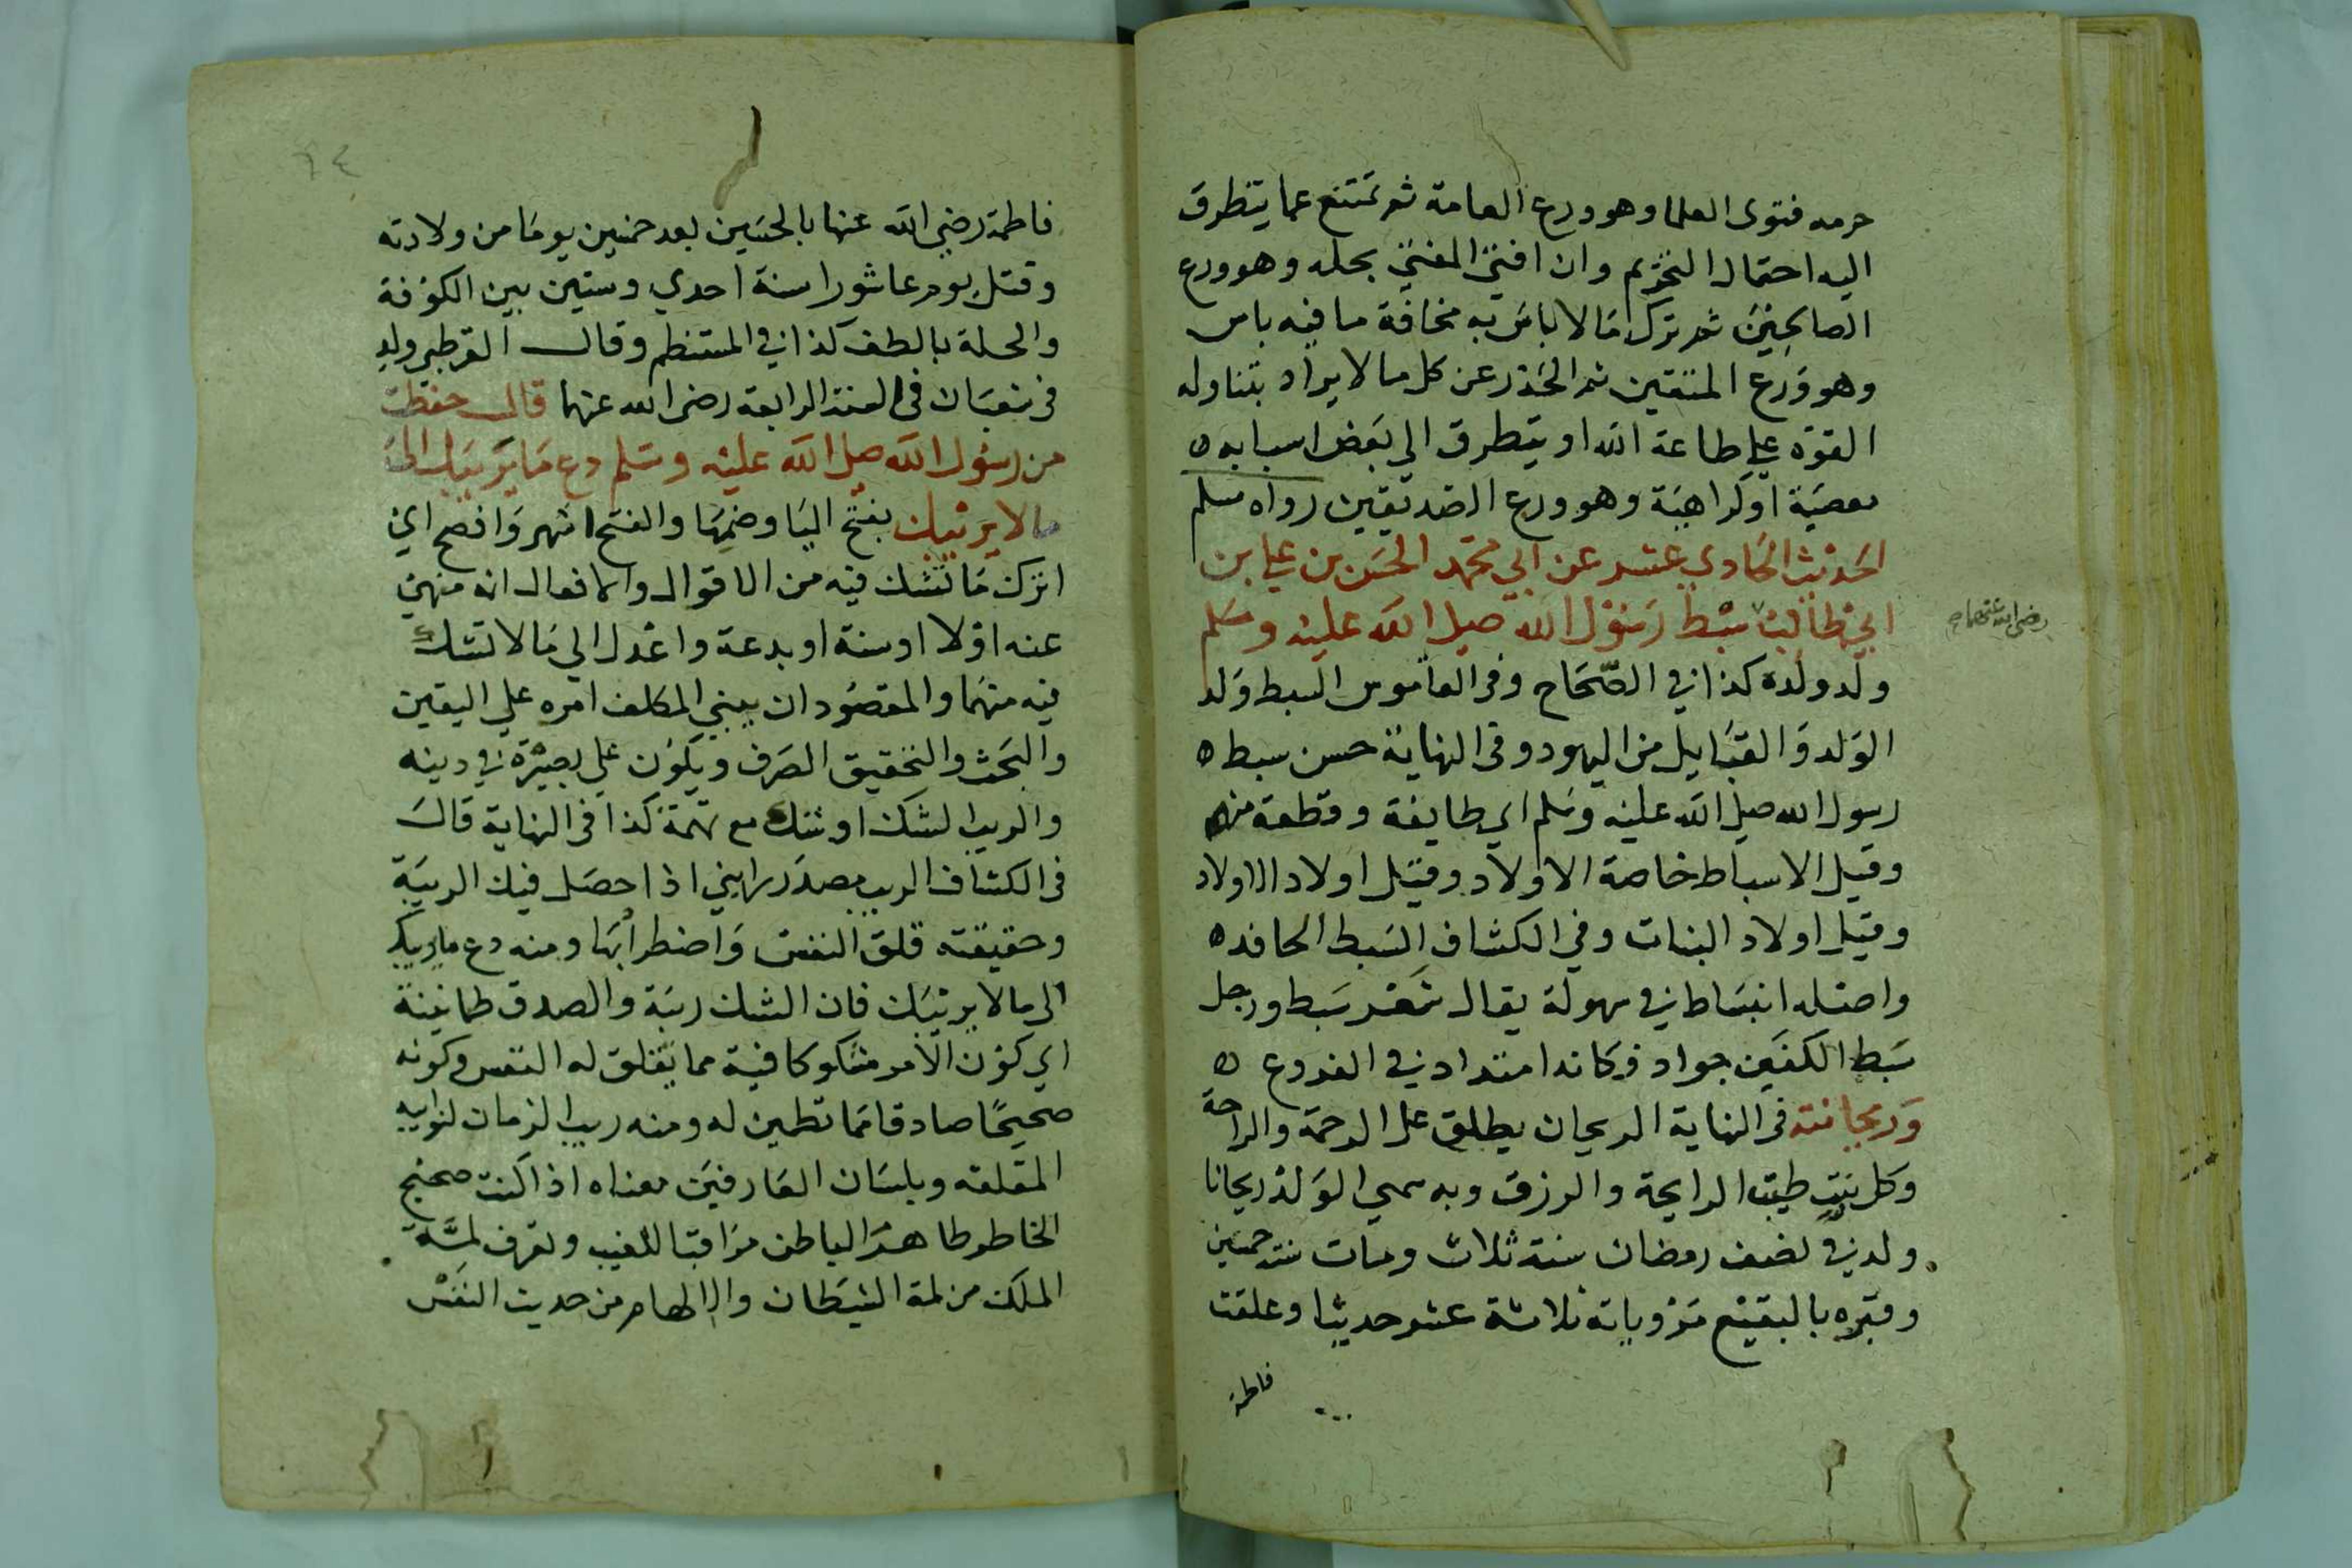 حرمه فتوى العلما وهو ورع العامة ثم تمتنع عما يتطرق
اليه احتمال التحريم وان افتى المفتي بحله وهو ورع
الصالحين ثم ترك مالا باس به مخافة ما فيه باس
وهو ورع المتقين ثم الحذر عن كل مالا يراد بتناوله
القوة علي طاعة الله او يتطرق الي بعض اسبابه ه
معصية او كراهية وهو ورع الصديقين رواه مسلم
الحديث الحادي عشر عن ابي محمد الحسن بن علي بن
ابي طالب سبط رسول الله صلي الله عليه وسلم
رضي الله عنهما صح
ولد ولده كذا في الصحاح وفي القاموس السبط ولد
الولد والقبايل من اليهود وفي النهاية حسن سبط ه
رسول الله صلي الله عليه وسلم اي طايفة وقطعة منه
وقيل الاسباط خاصة الاولاد وقيل اولاد الاولاد
وقيل اولاد البنات وفي الكشاف السبط الحافد ه
واصله انبساط في سهولة يقال شعر سبط ورجل
سبط الكفين جواد فكانه امتداد في الفروع ه
وريحانته في النهاية الريحان يطلق على الرحمة والراحة
وكل نبت طيب الرايحة والرزق وبه سمي الولد ريحانا
ولد في نصف رمضان سنة ثلاث ومات سنة خمسين
وقبره بالبقيع مروياته ثلاثة عشر حديثا وعلقت
فاطمة
٦٤
فاطمة رضي الله عنها بالحسين بعد خمسين يوما من ولادته
وقتل يوم عاشورا سنة احدي وستين بين الكوفة
والحلة بالطف كذا في المستنظم وقال القرطبي ولد
في شعبان في السنة الرابعة رضى الله عنهما قال حفظت
من رسول الله صلى الله عليه وسلم دع ما يريبك الى
مالا يريبك بفتح اليا وضمها والفتح اشهر وافصح اي
اترك ما تشك فيه من الاقوال والافعال انه منهي
عنه اولا او سنة او بدعة واعدل الي مالا تشك
فيه منهما والمقصود ان يبني المكلف امره علي اليقين
والبحث والتحقيق الصرف ويكون علي بصيرة في دينه
والريب الشك او شك مع تهمة كذا في النهاية قال
في الكشاف الريب مصدر رابني اذا حصل فيك الريبة
وحقيقته قلق النفس واضطرابها ومنه دع ما يريبك
الى مالا يريبك فان الشك ريبة والصدق طمانينة
اي كون الامر مشكوكا فيه مما يقلق له النفس وكونه
صحيحا صادقا مما تطمين له ومنه ريب الزمان لنوايبه
المقلقه وبلسان العارفين معناه اذا كنت صحيح
الخاطر طاهر الباطن مراقبا للغيب وتعرف لمة
الملك من لمة الشيطان والالهام من حديث النفس